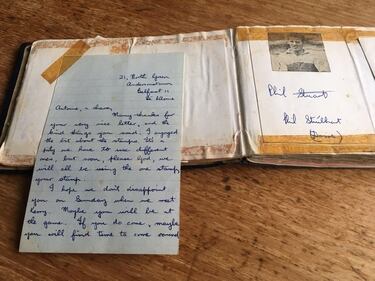 21, North Green
Andersonstown
Belfast 11
Co. Down
Antoine, a chara,
Many thanks for
your very nice letter, and the
kind things you said. I enjoyed
the bit about the stamps. It's a
pity we have to use different
ones, but soon, please God, we
will all be using the one stamp,
your stamp.
I hope we don't disappoint
you on Sunday when we meet
Kerry. Maybe you will be at
the game. If you do come, maybe
you will find time to come round
Phil Stuart
Phil
(Derry)